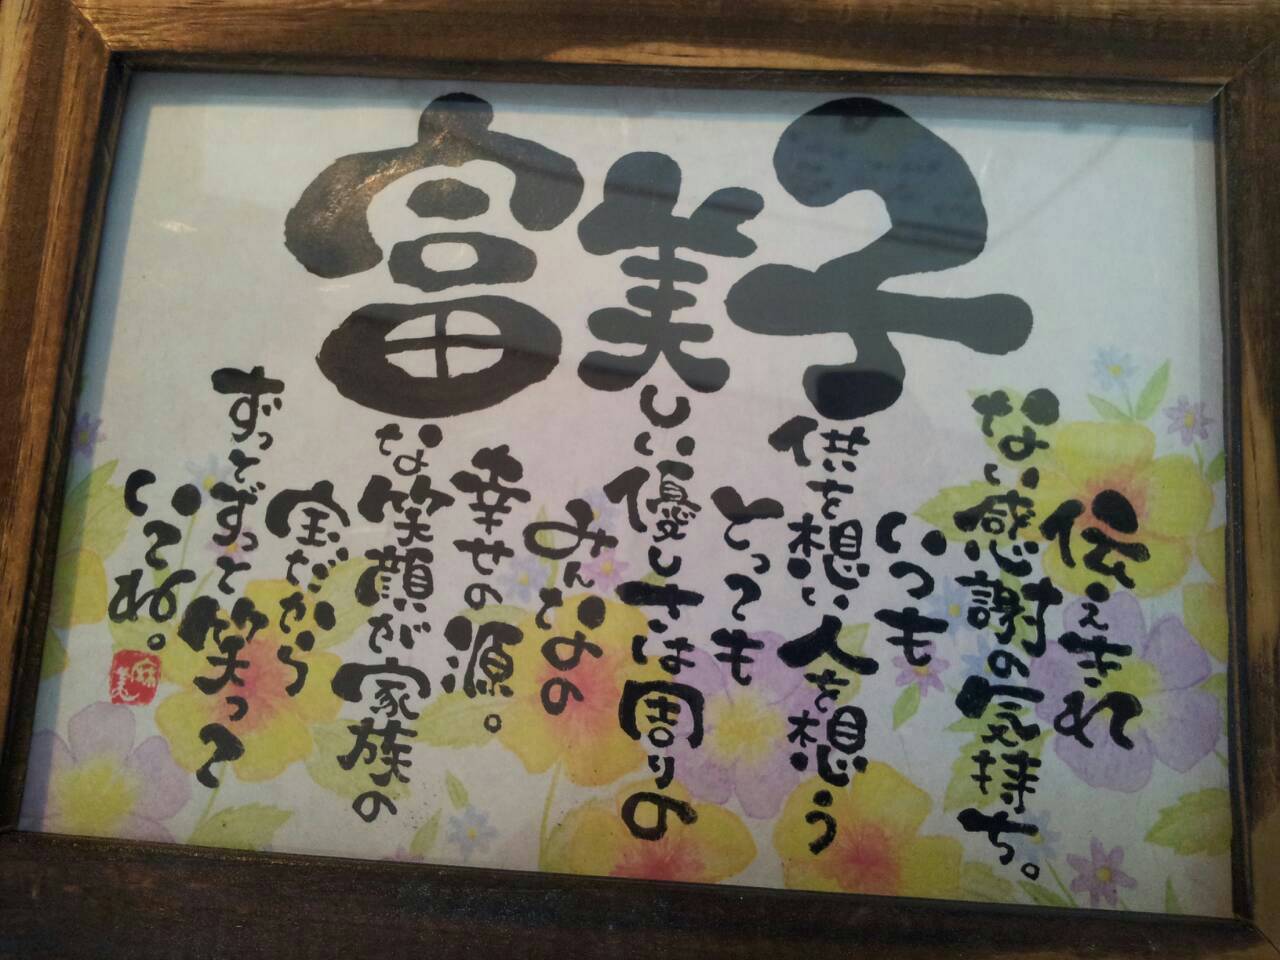 富美子
伝えきれ
ない感謝の気持ち。
いつも
供を想い人を想う
とっても
しい優しさは周りの
みんなの
幸せの源。
な笑顔が家族の
宝だから
ずっとずっと笑って
いてね。
麻美